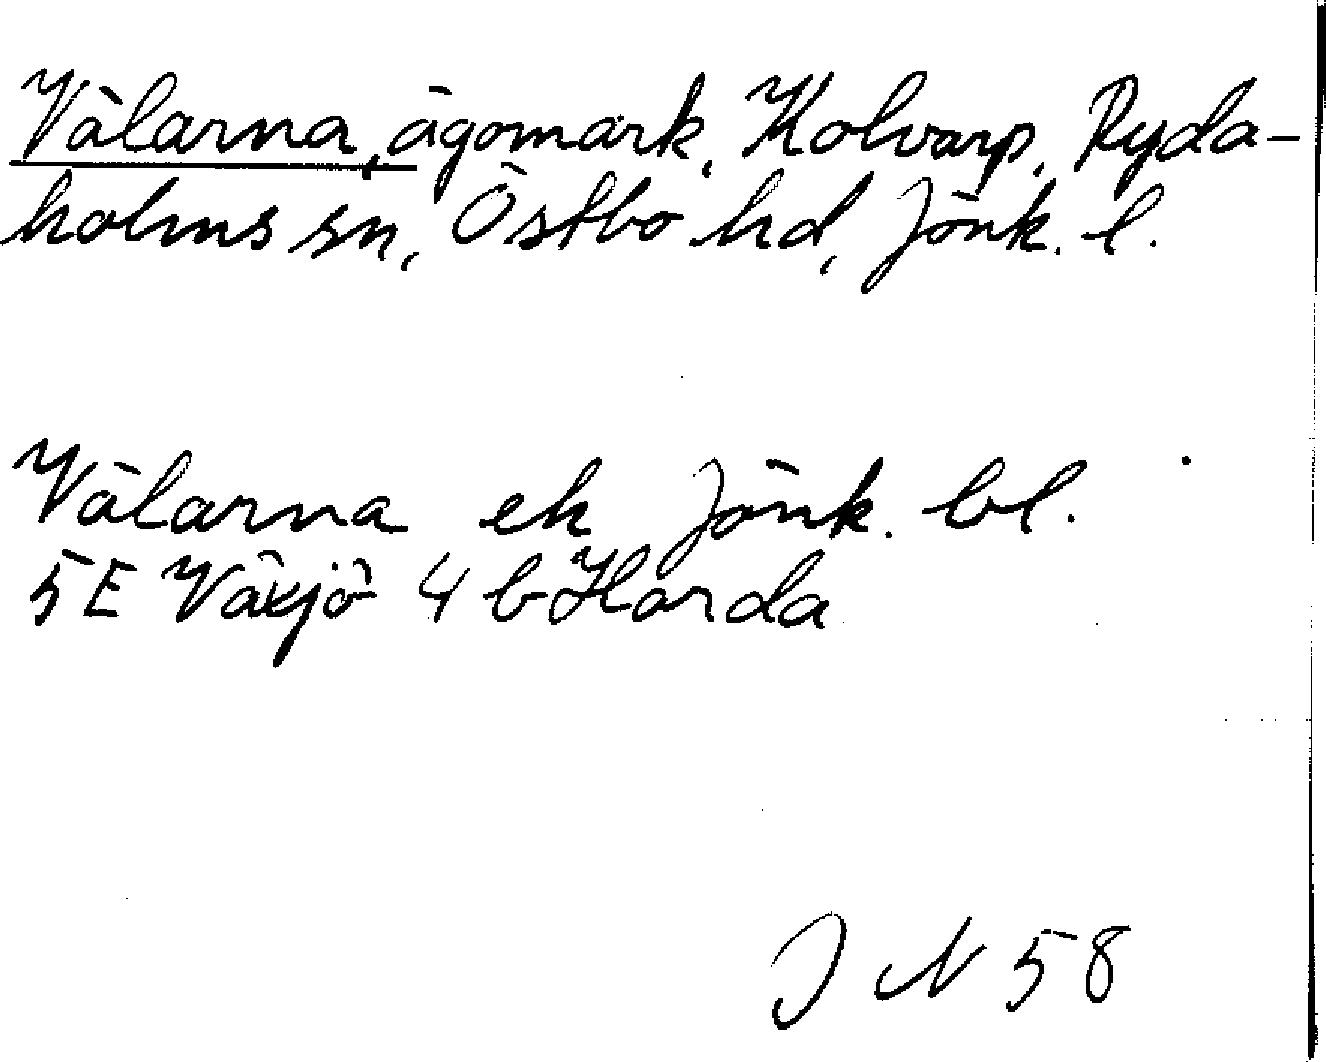 Välarna, ägomark, Kolvarp, Ryda-
holms sn, Östbo hd, Jönk. l.
Välarna ek Jönk. bl.
5E Växjö 4 b Horda
J N 58